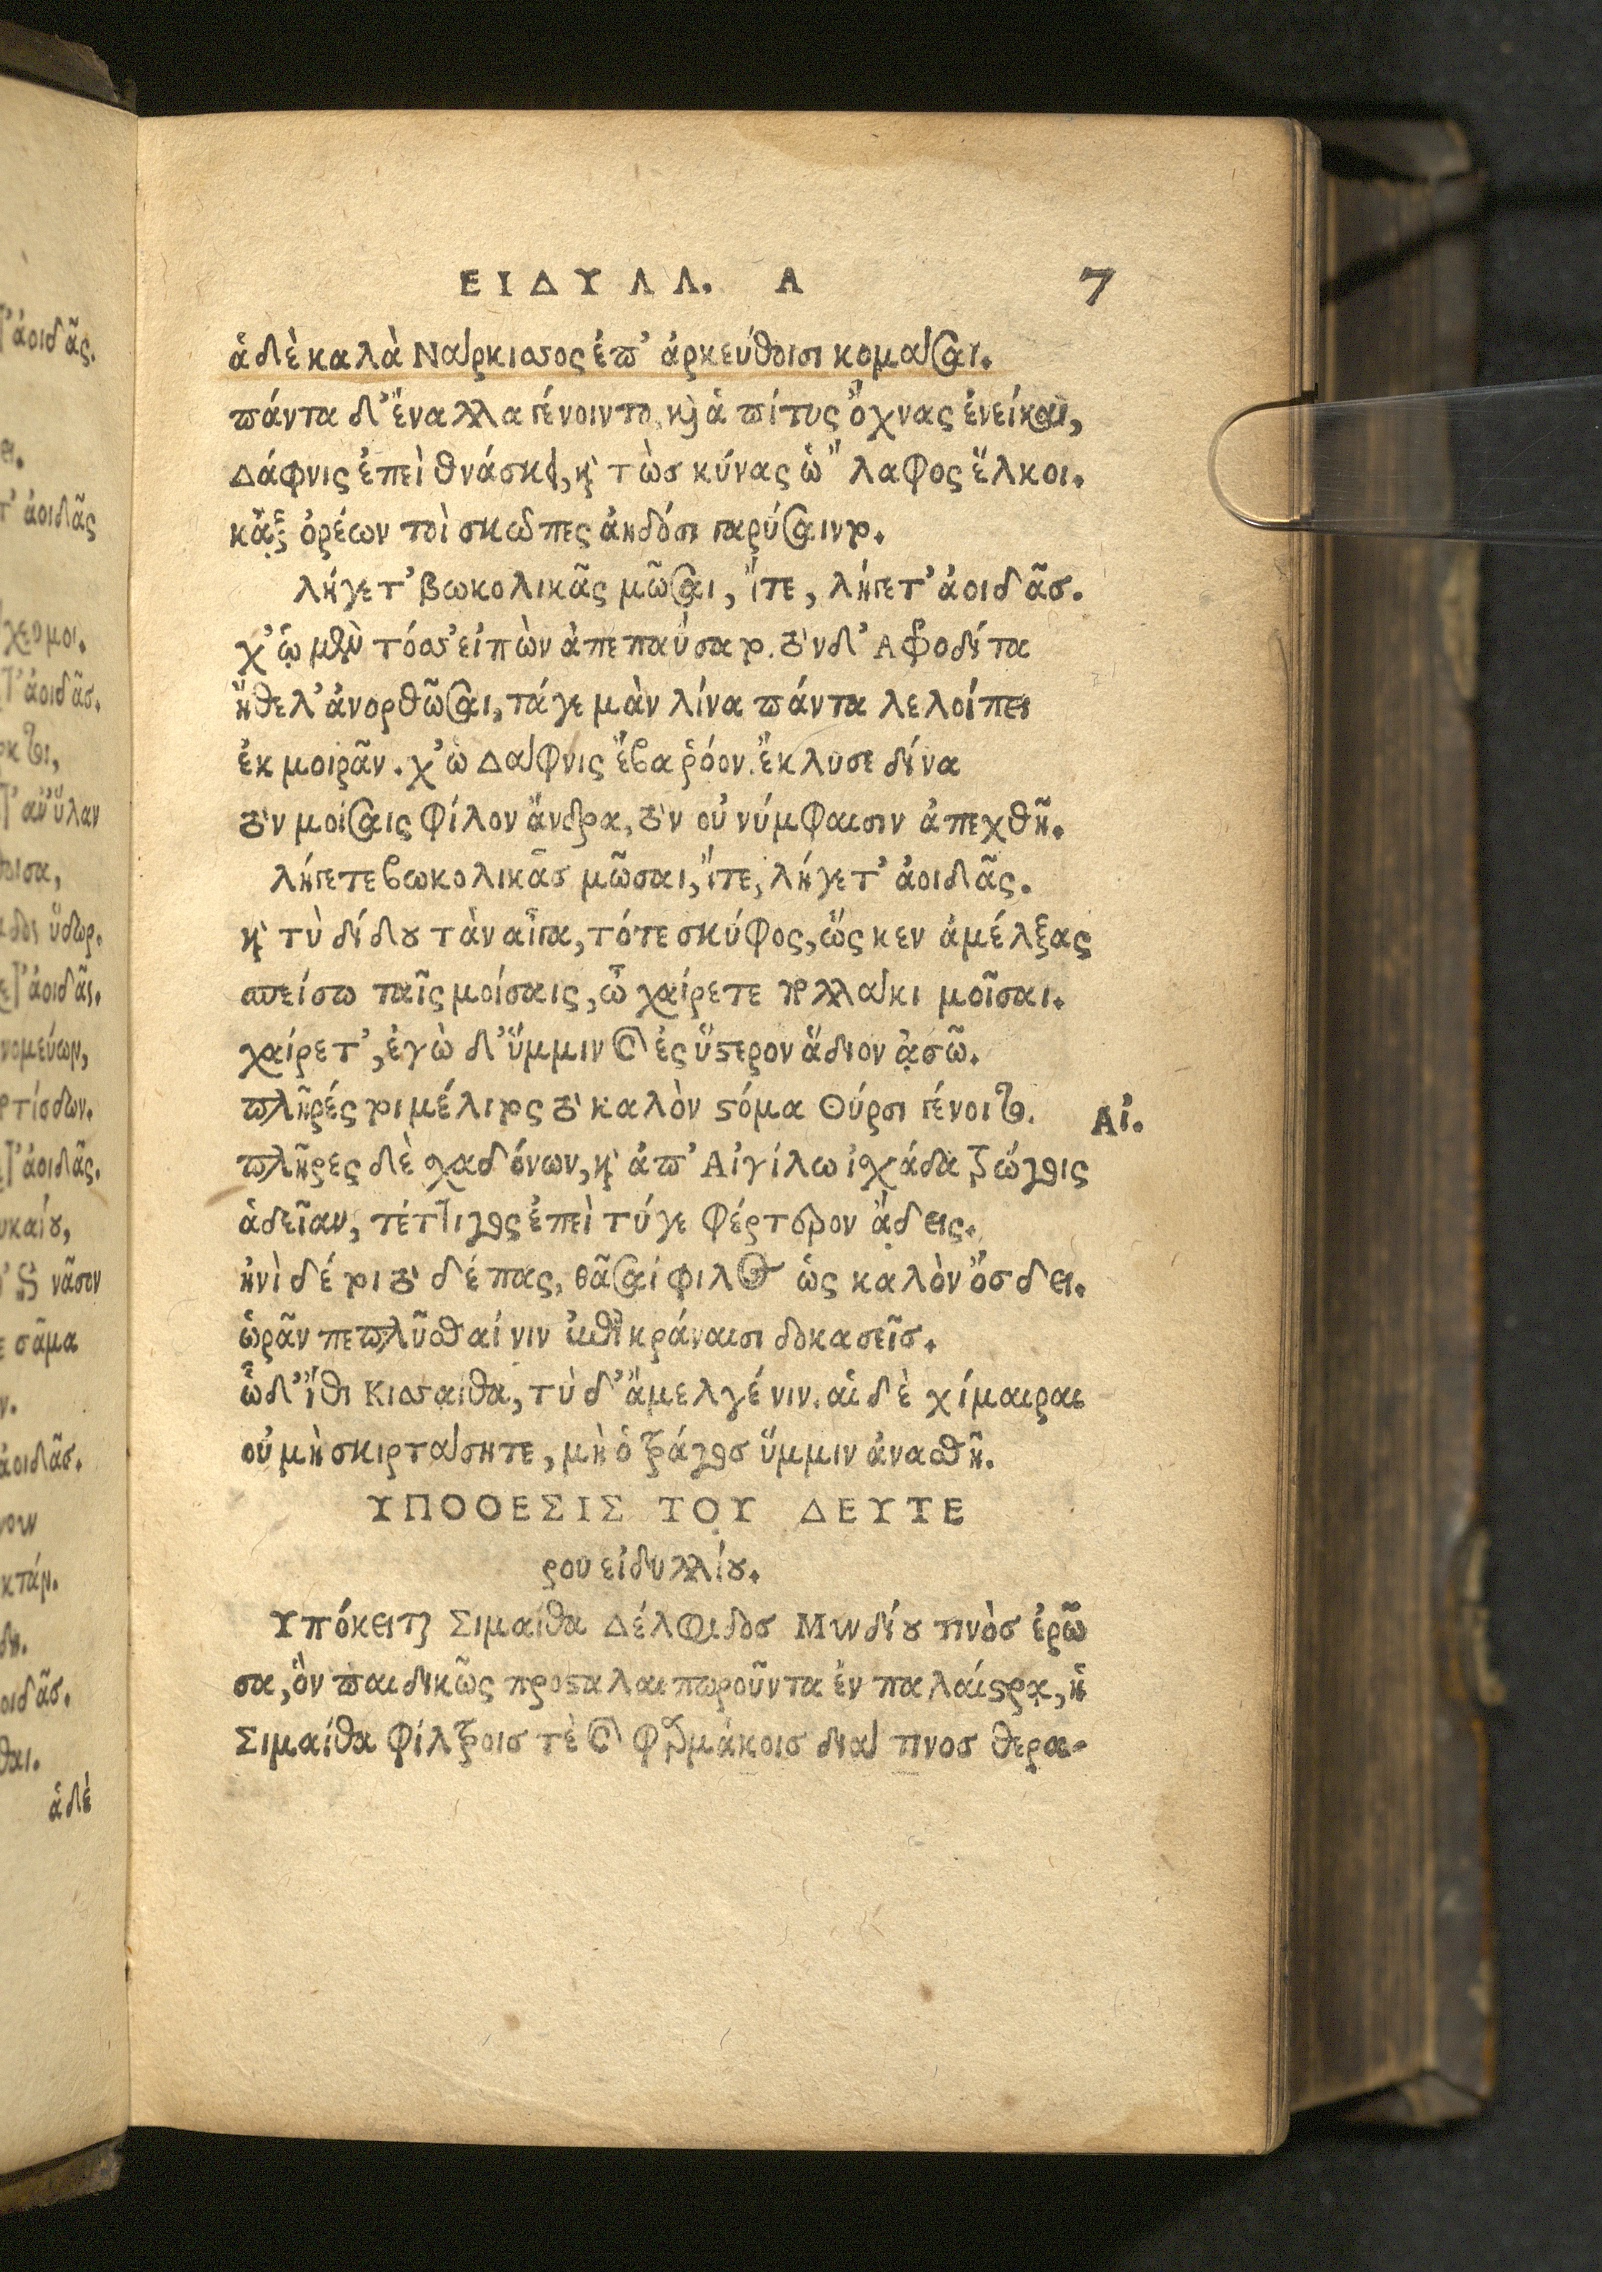 ΕΙΔΥΛΛ. Α 7
ἁ δὲ καλὰ Νάρκισσος ἐπ' ἀρκεύθοισι κομάσαι.
πάντα δ' ἔναλλα γένοιντο, καὶ ἁ πίτυς ὄχνας ἐνείκαι,
Δάφνις ἐπεὶ θνάσκει, καὶ τὼς κύνας ὢ λαφος ἕλκοι.
κᾀξ ὀρέων τοὶ σκῶπες ἀηδόσι γαρύσαιντο.
λήγετ' βωκολικᾶς μῶσαι, ἴτε, λήγετ' ἀοιδᾶς.
χ' ᾧ μὲν τόσσ' εἰπὼν ἀπεπαύσατο. τὸν δ' Ἀφροδίτα
ἤθελ' ἀνορθῶσαι, τά γε μὰν λίνα πάντα λελοίπει
ἐκ μοιρᾶν. χ' ὡ Δάφνις ἔβα ῥόον. ἔκλυσε δίνα
τὸν μοίσαις φίλον ἄνδρα, τὸν οὐ νύμφαισιν ἀπεχθῆ.
λήγετε βωκολικᾶς μῶσαι, ἴτε, λήγετ' ἀοιδᾶς.
καὶ τὺ δίδου τὰν αἶγα, τό τε σκύφος, ὥς κεν ἀμέλξας
σπείσω ταῖς μοίσαις, ὦ χαίρετε πολλάκι μοῖσαι.
χαίρετ', ἐγὼ δ' ὔμμιν καὶ ἐς ὕστερον ἅδιον ᾀσῶ.
πλῆρές τοι μέλιτος τὸ καλὸν στόμα Θύρσι γένοιτο. Αἰ.
πλῆρες δὲ σχαδόνων, καὶ ἀπ' Αἰγίλω ἰσχάδα τρώγοις
ἁδεῖαν, τέττιγος ἐπεὶ τύγε φέρτερον ᾄδεις.
ἠνὶ δέ τοι τὸ δέπας, θᾶσαί φιλος ὡς καλὸν ὄσδει.
ὡρᾶν πεπλῦσθαί νιν ἐπὶ κράναισι δοκασεῖς.
ὧδ' ἴθι Κισσαιθα, τὺ δ' ἄμελγέ νιν. αἱ δὲ χίμαιραι
οὐ μὴ σκιρτάσητε, μὴ ὁ τράγος ὔμμιν ἀνασθῇ.
ΥΠΟΘΕΣΙΣ ΤΟΥ ΔΕΥΤΕ
ρου εἰδυλλίου.
Υπόκειται Σιμαίθα Δέλφιδος Μυνδίου τινὸς ἐρῶ
σα, ὃν παιδικῶς προσταλαιπωροῦντα ἐν παλαίστρᾳ, ἡ
Σιμαίθα φίλτροις τὲ καὶ φαρμάκοις διά τινος θερα-